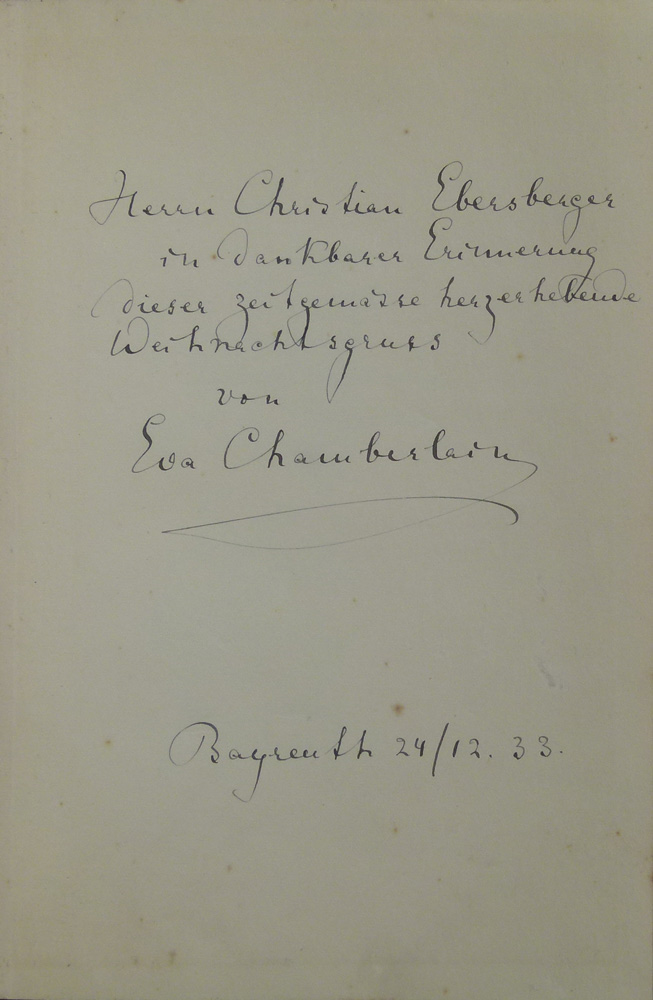 Herrn Christian Ebersberger
in dankbarer Erinnerung
dieser zeitgemässe herzerhebende
Weihnachtsgruss
von
Eva Chamberlain
Bayreuth 24/12. 33.